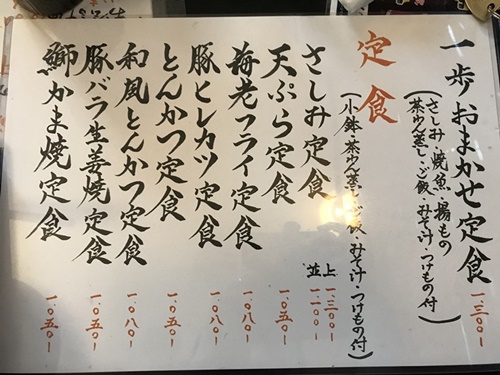 一歩おまかせ定食 一、三〇〇ー
(さしみ・焼魚・揚もの
茶わん蒸し・ご飯・みそ汁・つけもの付)
定食
(小鉢・茶わん蒸し・ご飯・みそ汁・つけもの付)
さしみ定食 上 一、三〇〇ー
並 一、一〇〇ー
天ぷら定食 一、〇五〇ー
海老フライ定食 一、〇八〇ー
豚ヒレカツ定食 一、〇八〇ー
とんかつ定食 一、〇五〇ー
和風とんかつ定食 一、〇八〇ー
豚バラ生姜焼定食 一、〇五〇ー
鰤かま焼定食 一、〇五〇ー